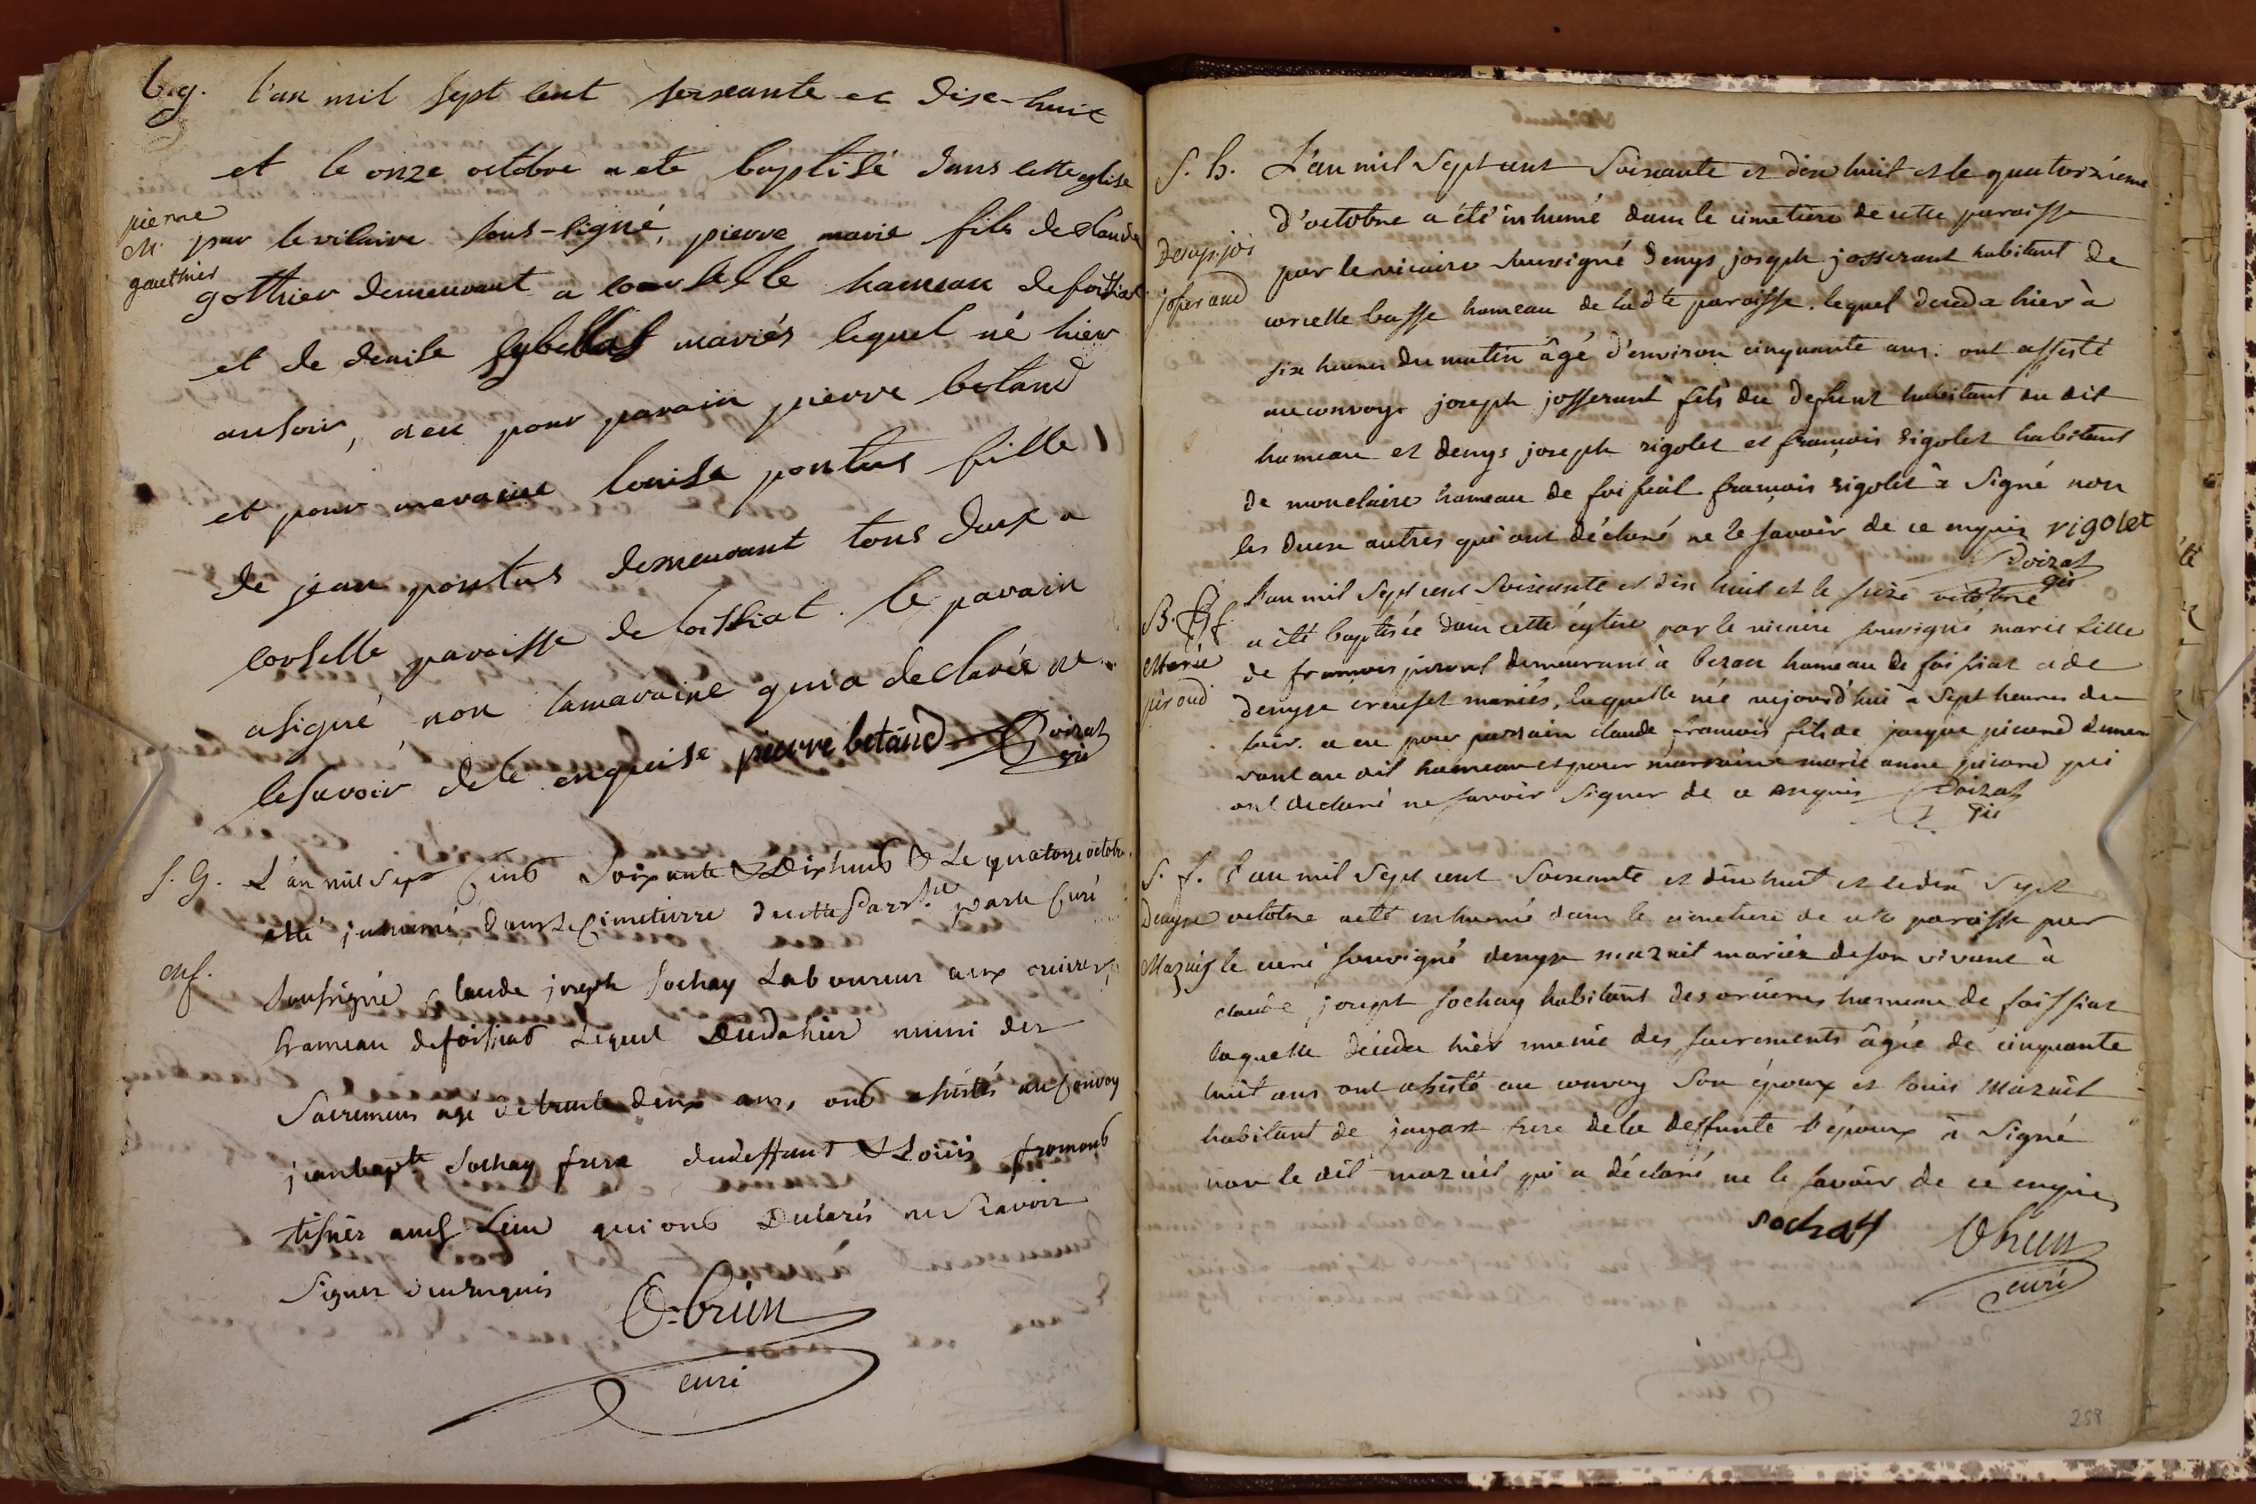 b.g. l'an mil sept cent seixante et dixe-huit
et le onze octobre a eté baptisé dans cette eglise
pierre
M.
gauthier
par le vicaire sous-signé, pierre marie fils de claude
gothier demeurant a corselle hameau de foissiat
et de denise mariés lequel né hier
au soir, a eu pour parain pierre betand
et pour maraine louise pontus fille
de jean pontus demeurant tous deux a
corselle paroisse de foissiat. le parain
a signé non la maraine qui a declarée ne
le savoir de ce enquise pierre betand Poizat
vic
S. G. L'an mil sept Cent soixante & Dix huit & Le quatorze octobre
eté jnhumé dans Le Cimetierre de cette Parr.se par le Curé
mf.
soussigné Claude joseph Sochay Laboureur aux
hameau de foissiat Lequel Deceda hier muni des
Sacremens agé de trente deux ans, ont assistés au Convoy
jean bapte Sochay frere du deffunt & Loüis fromont
qui ont Declarés ne Scavoir
Signer de ce Enquis
O-brien
curé
S. h. L'an mil sept cent soixante et dix huit et le quatorziéme
d'octobre a été inhumé dans le cimetiere de cette paroisse
Denys jos
josserand
par le vicaire soussigné denys joseph josserant habitant de
corcelle basse hameau de ladte paroisse. lequel deceda hier à
six heures du matin âgé d'environ cinquante ans. ont assisté
au convoye joseph josserant fils du defunt habitant du dit
hameau et denys joseph rigolet et françois rigolet habitant
de monclaire hameau de foissiat françois rigolet à signé non
les deux autres qui ont déclaré ne le savoir de ce enquis rigolet
Poizat
vic
B. f. L'an mil sept cent soixante et dix huit et le seize octobre
a été baptisée dans cette église par le vicaire soussigné marie fille
Marie
piroud
de françois piroud demeurant à bezan hameau de foissiat et de
denyse creuset mariés, laquelle née aujourd'hui à sept heures du
soir. a eu pour parrain claude françois fils de jacque picard demeu
rant au dit hameau et pour marraine marie anne picard qui
ont declaré ne savoir signer de ce enquis Poizat
vic
S. f. L'an mil sept cent soixante et dix huit et le dix sept
Denyse octobre a eté inhumé dans le cimetiere de cete paroisse par
Mazuit le curé soussigné denyse mazuit mariée de son vivant à
claude joseph sochay habitant des hameau de foissiat
laquelle déceda hier munie des sacrements âgée de cinquante
huit ans ont assisté au convoy son époux et louis mazuit
habitant de jayat frere de la deffunte l'époux à signé
non le dit mazuit qui a déclaré ne le savoir de ce enquis
sochay Obrien
curé
258